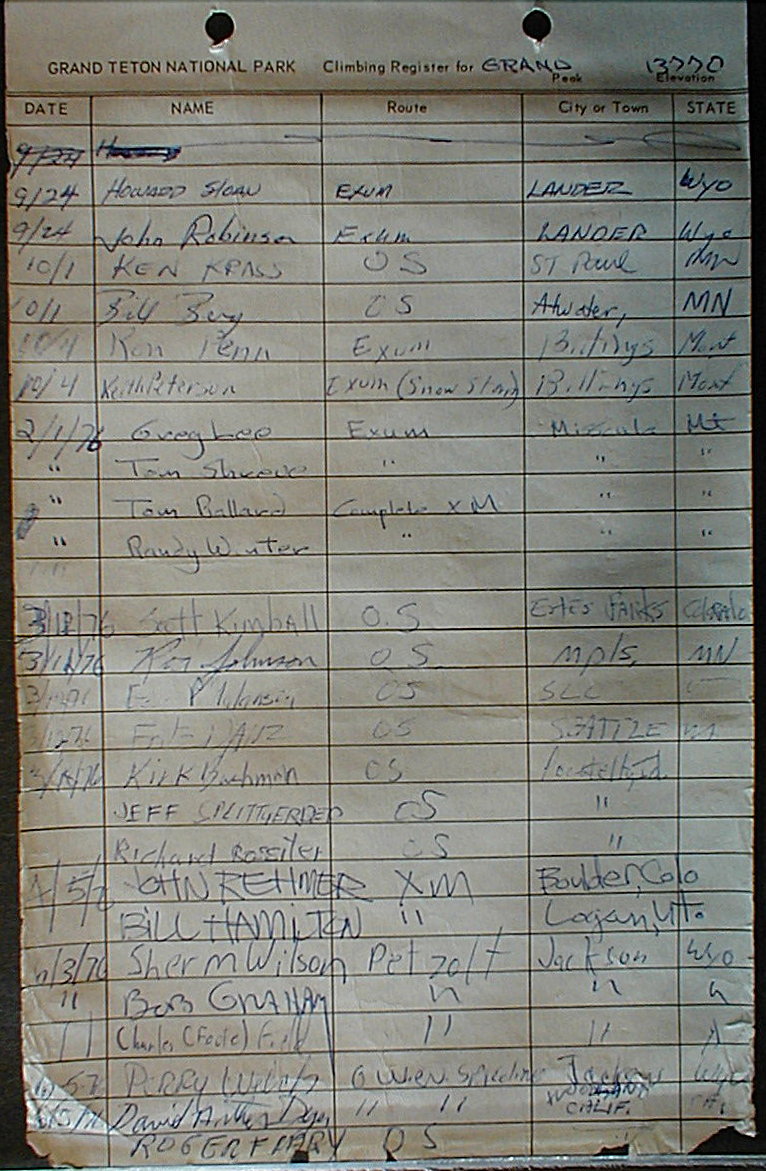 GRAND TETON NATIONAL PARK Climbing Register for GRAND Peak 13770 Elevation
DATE NAME Route City or Town STATE
9/24
9/24 HOWARD SLOAN EXUM LANDER Wyo
9/24 John Robinson Exum LANDER Wyo
10/1 KEN KRASS OS ST Paul MN
10/1 Bill Berg OS Atwater, MN
10/4 Ron Penn Exum Billings Mont
10/4 Keith Peterson Exum (Snow Storm) Billings Mont
2/1/76 Greg Lee Exum Missoula Mt
" Tom Shreve " " "
" Tom Ballard Complete XM " "
" Randy Winter " " "
3/12/76 Scott Kimball O.S Estes Parks Colorado
3/12/76 Johnson O.S. mpls, MN
OS SLC
OS SEATTLE
Kirk Bachman OS
JEFF SPLITTGERBER OS "
Richard Rossiter OS "
JOHN REHMER XM Boulder, Colo
BILL HAMILTON " Logan, Ut.
6/3/76 Sherm Wilson Petzolt Jackson Wyo
" BOB GRAHAM " " "
" Charles " "
PERRY Owen Spalding Jackson Wyo
David " " WOODLAND CALIF.
ROGER OS